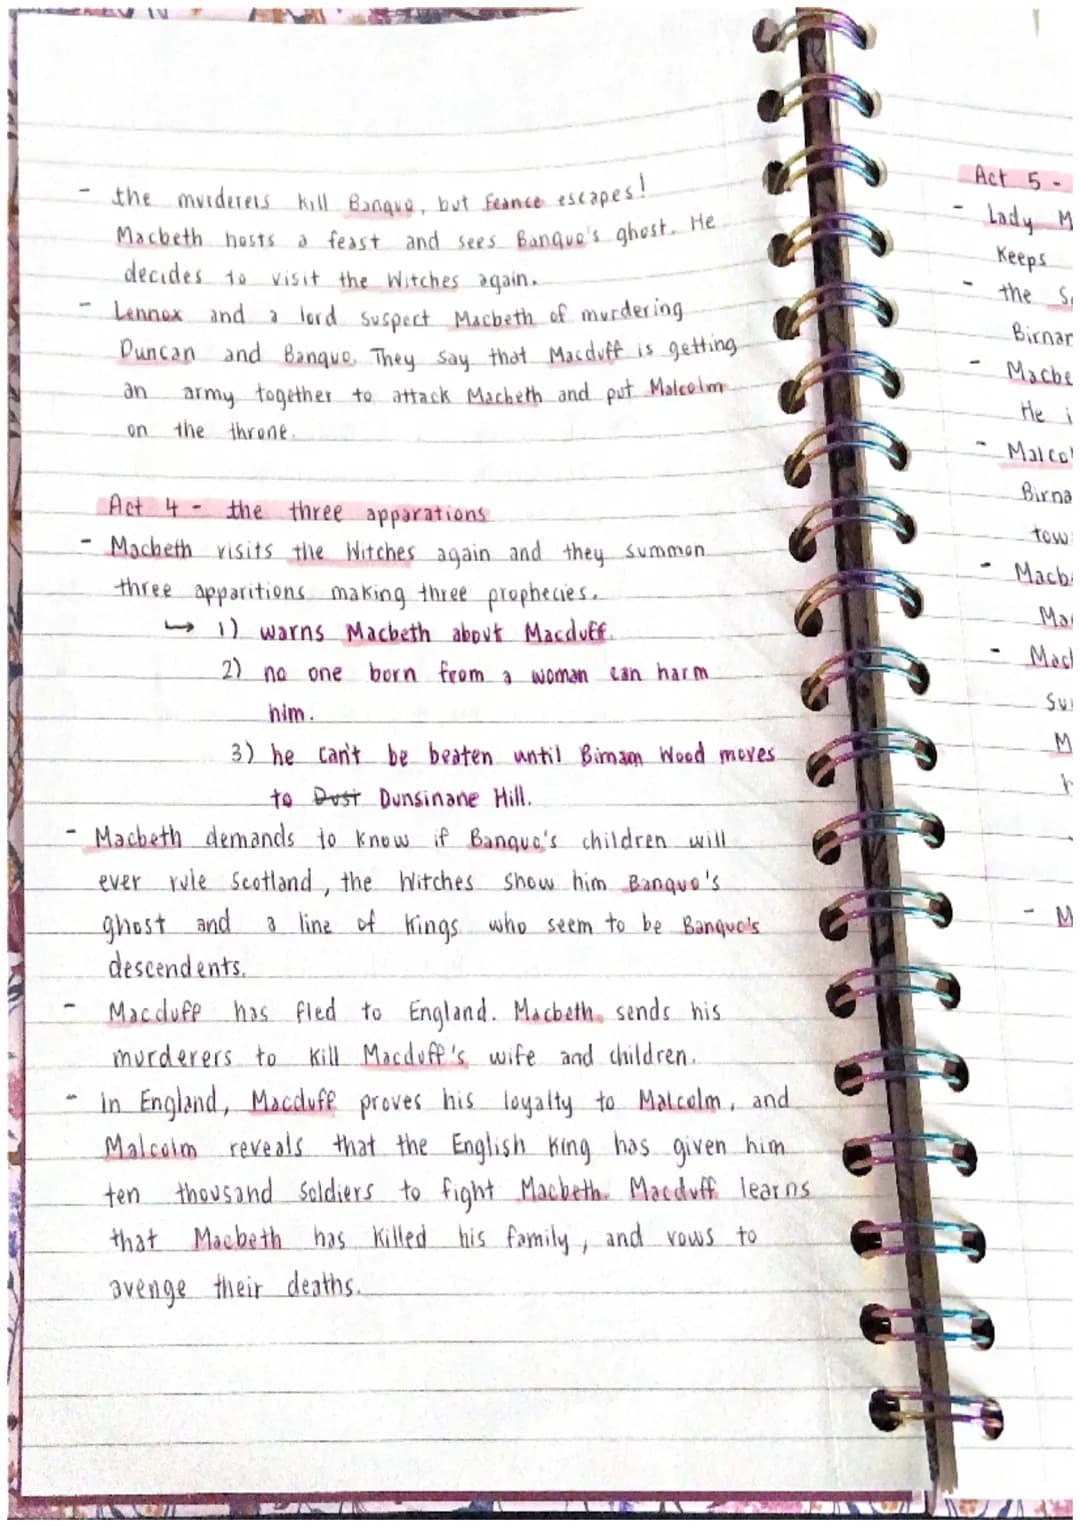 - the murderers kill Banquo, but Feance escapes!
Macbeth hosts a feast and sees Banquo's ghost. He
decides to visit the Witches again.
- Lennox and a lord suspect Macbeth of murdering
Duncan and Banquo. They say that Macduff is getting
an army together to attack Macbeth and put Malcolm
on the throne.
Act 4 - the three apparations
- Macbeth visits the Witches again and they summon
three apparitions making three prophecies.
→ 1) warns Macbeth about Macduff.
2) no one born from a woman can harm
him.
3) he can't be beaten until Birnam Wood moves
to Dust Dunsinane Hill.
- Macbeth demands to know if Banquo's children will
ever rule Scotland, the Witches show him Banquo's
ghost and a line of Kings who seem to be Banquo's
descendents.
- Macduff has fled to England. Macbeth sends his
murderers to kill Macduff's wife and children.
- in England, Macduff proves his loyalty to Malcolm, and
Malcolm reveals that the English King has given him
ten thousand Soldiers to fight Macbeth. Macduff learns
that Macbeth has killed his family, and vows to
avenge their deaths.
Act 5 -
- Lady M
Keeps
- the S
Birnar
- Macbe
He i
- Malcol
Birna
tow
- Macb
Ma
- Mac
Su
M
- M